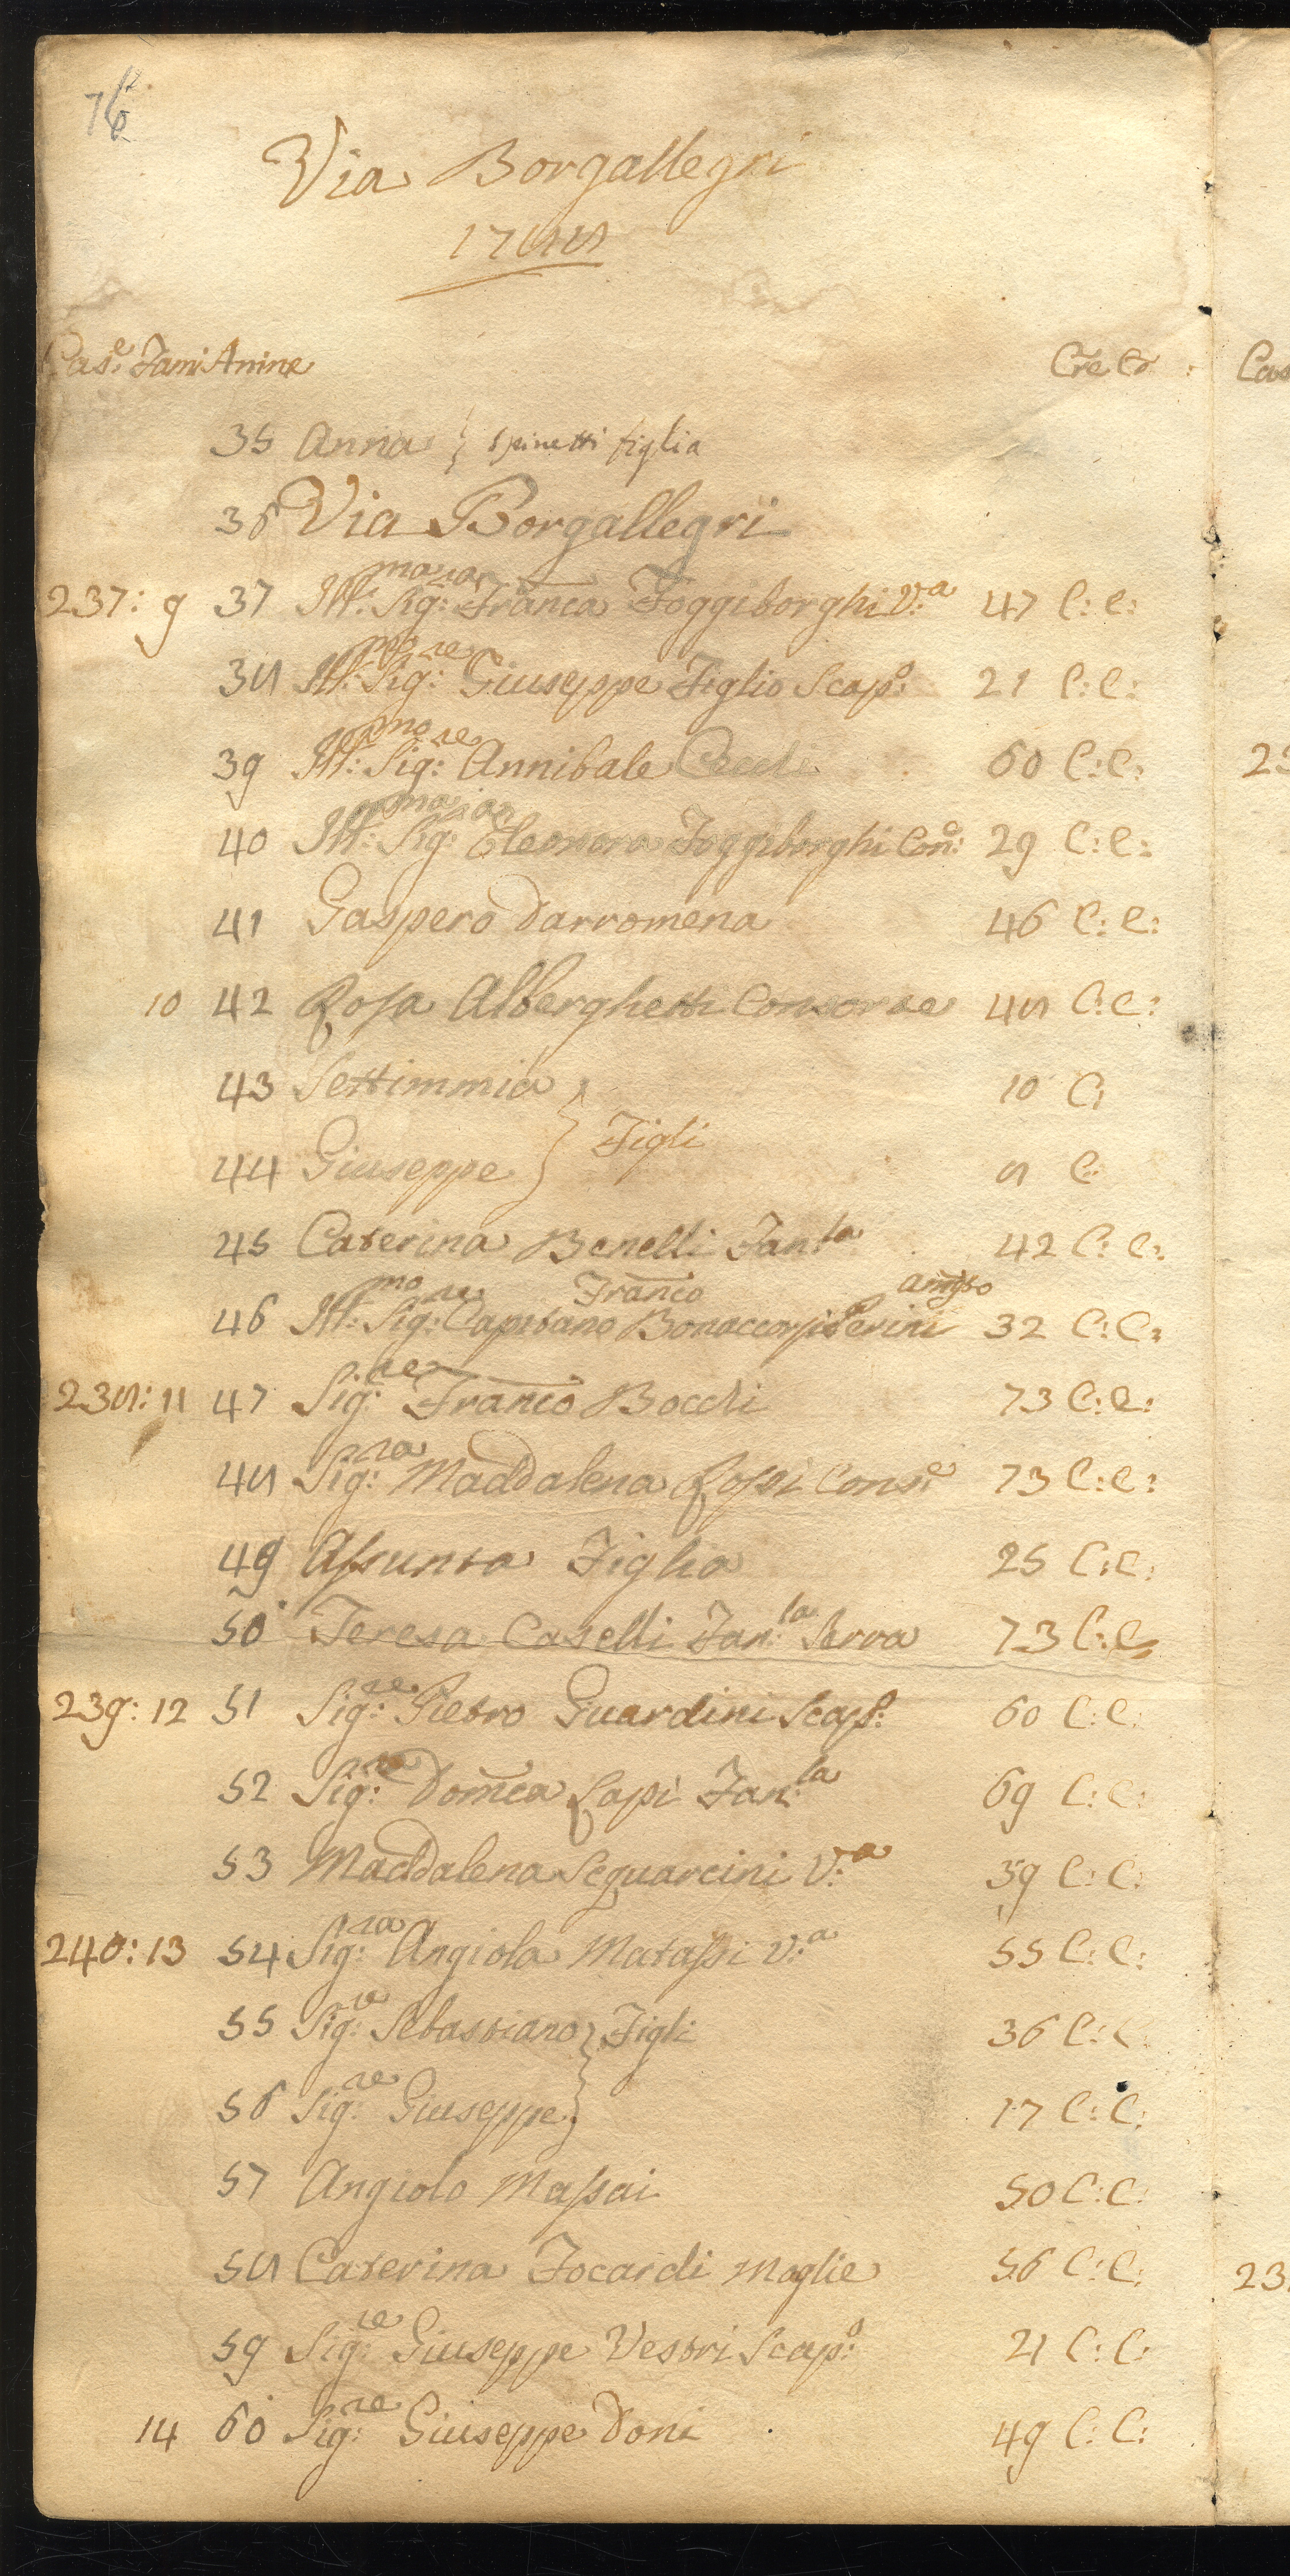 76
Via Borgallegri
1788
Case Fami Anime Cre Co:
35 Anna } Spinetti figlia
36 Via Borgallegri
237: 9 37 Ill:ma Sig:ra Franca Foggiborghi V:a 47 C: C:
38 Ill:mo Sig:re Giuseppe Figlio Scap:o 21 C: C:
39 Ill:mo Sig:re Annibale 60 C: C:
40 Ill:ma Sig:ra Eleonora Foggiborghi Con:e 29 C: C:
41 Gaspero Darromena 46 C: C:
10 42 Rosa Alberghetti Consorte 48 C: C:
43 Settimmia } 10 C:
Figli
44 Giuseppe } 8 C:
45 Caterina Benelli Fan:la 42 C: C:
46 Ill:mo Sig:re Capitano Franco Bonaccorsi Perini 32 C: C:
238: 11 47 Sig:re Franco Bocchi 73 C: C:
48 Sig:ra Maddalena Rossi Cons:e 73 C: C:
49 Assunta Figlia 25 C: C:
50 Teresa Caselli Fan:la Serva 73 C: C:
239: 12 51 Sig:re Pietro Guardini Scap:o 60 C: C:
52 Sig:ra Domca Lapi Fan:la 69 C: C:
53 Maddalena Squarcini V:a 39 C: C:
240: 13 54 Sig:ra Angiola Matassi V:a 55 C: C:
55 Sig:re Sebastiano } Figli 36 C: C:
56 Sig:re Giuseppe } 17 C: C:
57 Angiolo Massai 50 C: C:
58 Caterina Focardi Moglie 56 C: C:
59 Sig:re Giuseppe Vestri Scap:o 21 C: C:
14 60 Sig:re Giuseppe Doni 49 C: C: